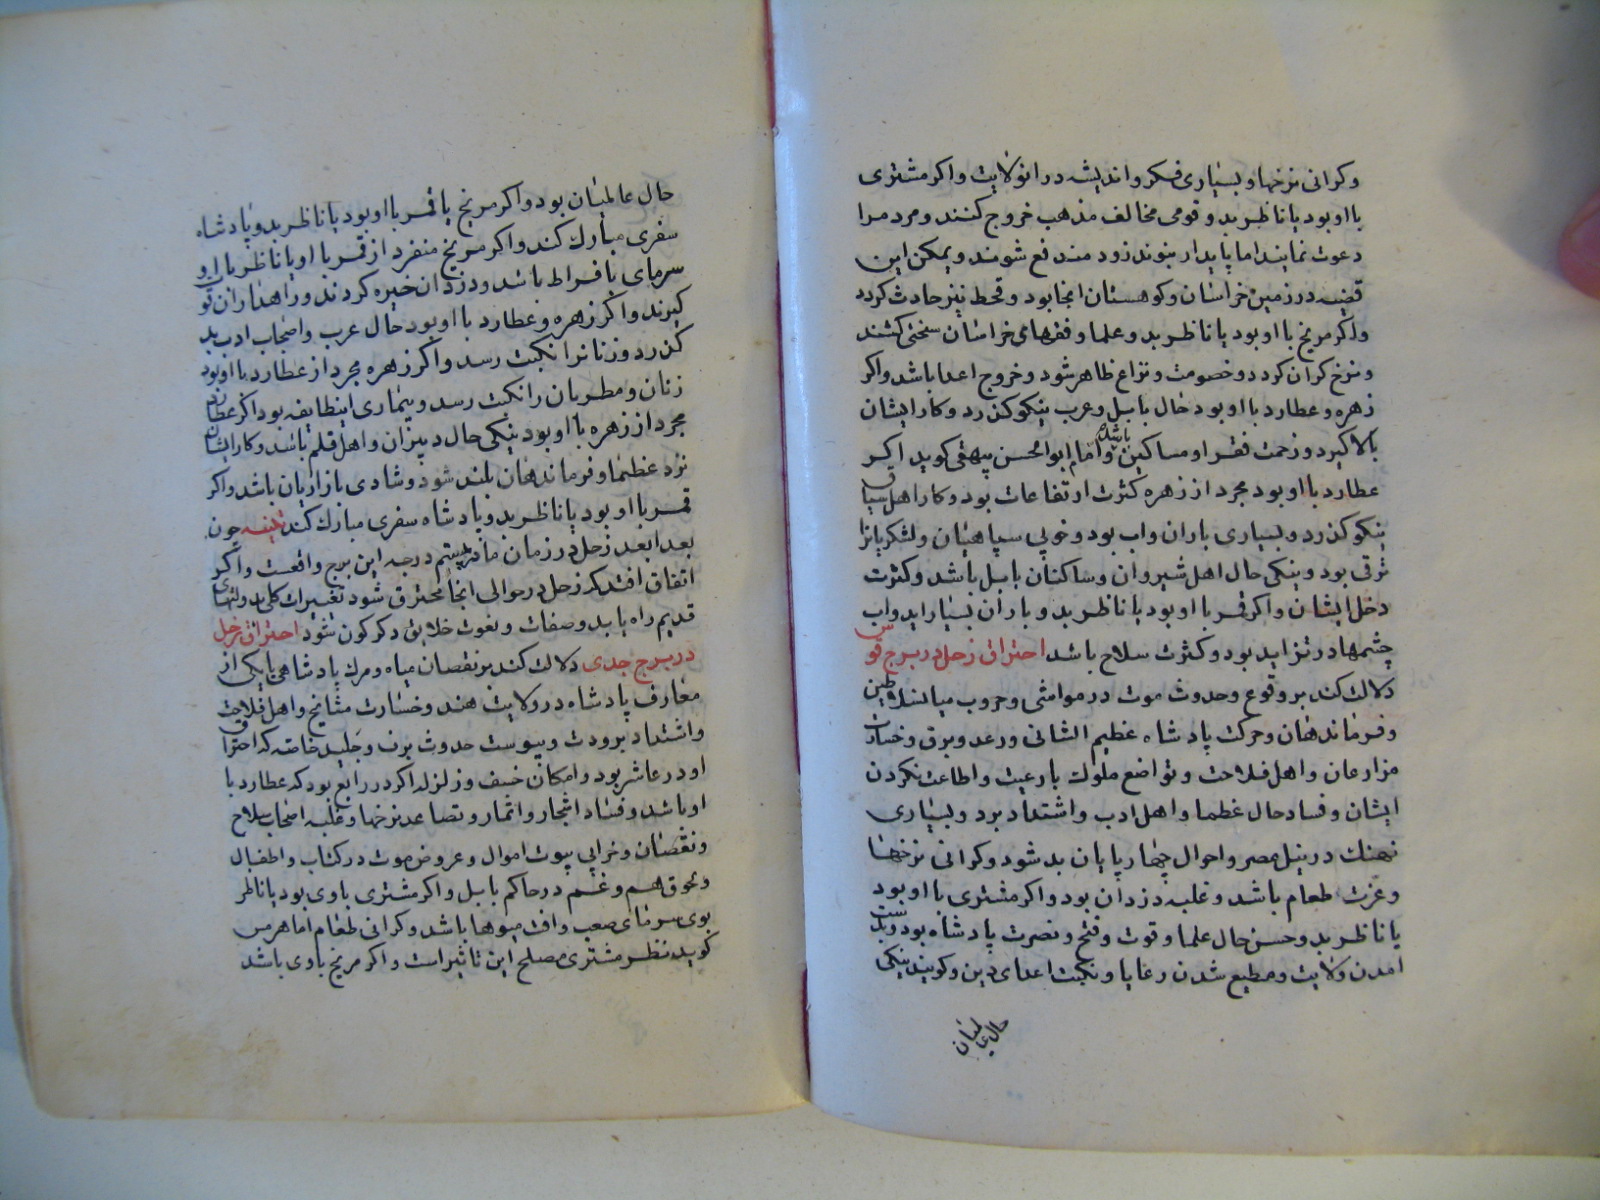 وکرانی نرخها و بسیاری فکر و اندیشه در ان ولایت و اکر مشتری
با او بود یا ناظر بد و قومی مخالف مذهب خروج کنند و مردم را
دعوت نمایند اما پایدار نبوند زود مندفع شوند و یمکن این
قضیه در زمین خراسان و کوهستان انجا بود و قحط نیز حادث کردد
و اکر مریخ با او بود یا ناظر بد و علما و فقهای خراسان سختی کشند
و نرخ کران کردد و خصومت و نزاع ظاهر شود و خروج اعدا باشد و اکر
زهره و عطارد با او بود حال بابل و عرب نیکو کذرد و کار ایشان
بالا کیرد و زحمت فقرا و مساکین باشد و امام ابوالحسن بیهقی کوید اکر
عطارد با او بود مجرد از زهره کثرت ارتفاعات بود و کار اهل سیاق
نیکو کذرد و بسیاری باران و اب بود و خوبی سپاهیان و لشکریانرا
ترقی بود و نیکی حال اهل شیروان و ساکنان بابل باشد و کثرت
دخل ایشان و اکر قمر با او بود یا ناظر بد و باران بسیار اید و اب
چشمها در تزاید بود و کثرت سلاح باشد احتراق زحل در برج قوس
دلالت کند بر وقوع و حدوث موت در مواشی و حروب میا سلاطین
و فرماندهان و حرکت پادشاه عظیم الشانی و رعد و برق و خسارت
مزارعان و اهل فلاحت و تواضع ملوک با رعیت و اطاعت نکردن
ایشان و فساد حال عظما و اهل ادب و اشتداد برد و بسیاری
نهنک در نیل مصر و احوال چهارپایان بد شود و کرانی نرخها
و عزت طعام باشد و غلبه دزدان بود و اکر مشتری با او بود
یا ناظر بد و حسن حال علما و قوت و فتح و نصرت پادشاه بود و بدست
امدن ولایت و مطیع شدن رعایا و نکبت اعدای دین و کویند نیکی
حال عالمیان
حال عالمیان بود و اکر مریخ با قمر با او بود یا ناظر بد و پادشاه
سفری مبارک کند و اکر مریخ منفرد از قمر با او یا ناظر با او
سرمای بافراط باشد و دزدان خیره کردند و راهداران قو
کیرند و اکر زهره و عطارد با او بود حال عرب و اصحاب ادب بد
کذرد و زنانرا نکبت رسد و اکر زهره مجرد از عطارد با او بود
زنان و مطربان را نکبت رسد و بیماری اینطایفه بود اکر عطارد
مجرد از زهره با او بود نیکی حال دبیران و اهل قلم باشد و کار ایشان
نزد عظما و فرماندهان بلند شود و شادی بازاریان باشد و اکر
قمر با او بود یا ناظر بد و پادشاه سفری مبارک کند تنبیه چون
بعد ابعد زحل در زمان ما در بیستم درجه این برج واقعست و اکر
اتفاق افتد که زحل در حوالی انجا محترق شود تغییرات کلی بدولتهای
قدیم راه یابد و صفات و نعوت خلایق دکرکون شود احتراق زحل
در برج جدی دلالت کند بر نقصان میاه و مرک پادشاهی یا یکی از
معارف پادشاه در ولایت هند و خسارت مشایخ و اهل فلاحت
و اشتداد برودت و یبوست حدوث برف و جلید خاصه که احتراق
او در عاشر بود و امکان خسف و زلزله اکر در رابع بود که عطارد با
او باشد و فساد اشجار و اثمار و تصاعد نرخها و غلبه اصحاب سلاح
و نقصان و خرابی بیوت اموال و عروض موت در کتاب و اطفال
و لحوق هم و غم در حاکم بابل و اکر مشتری با وی بود یا ناظر
بوی سرمای صعب و افت میوها باشد و کرانی طعام اما هرمس
کوید نظر مشتری مصلح این تاثیر است و اکر مریخ با وی باشد